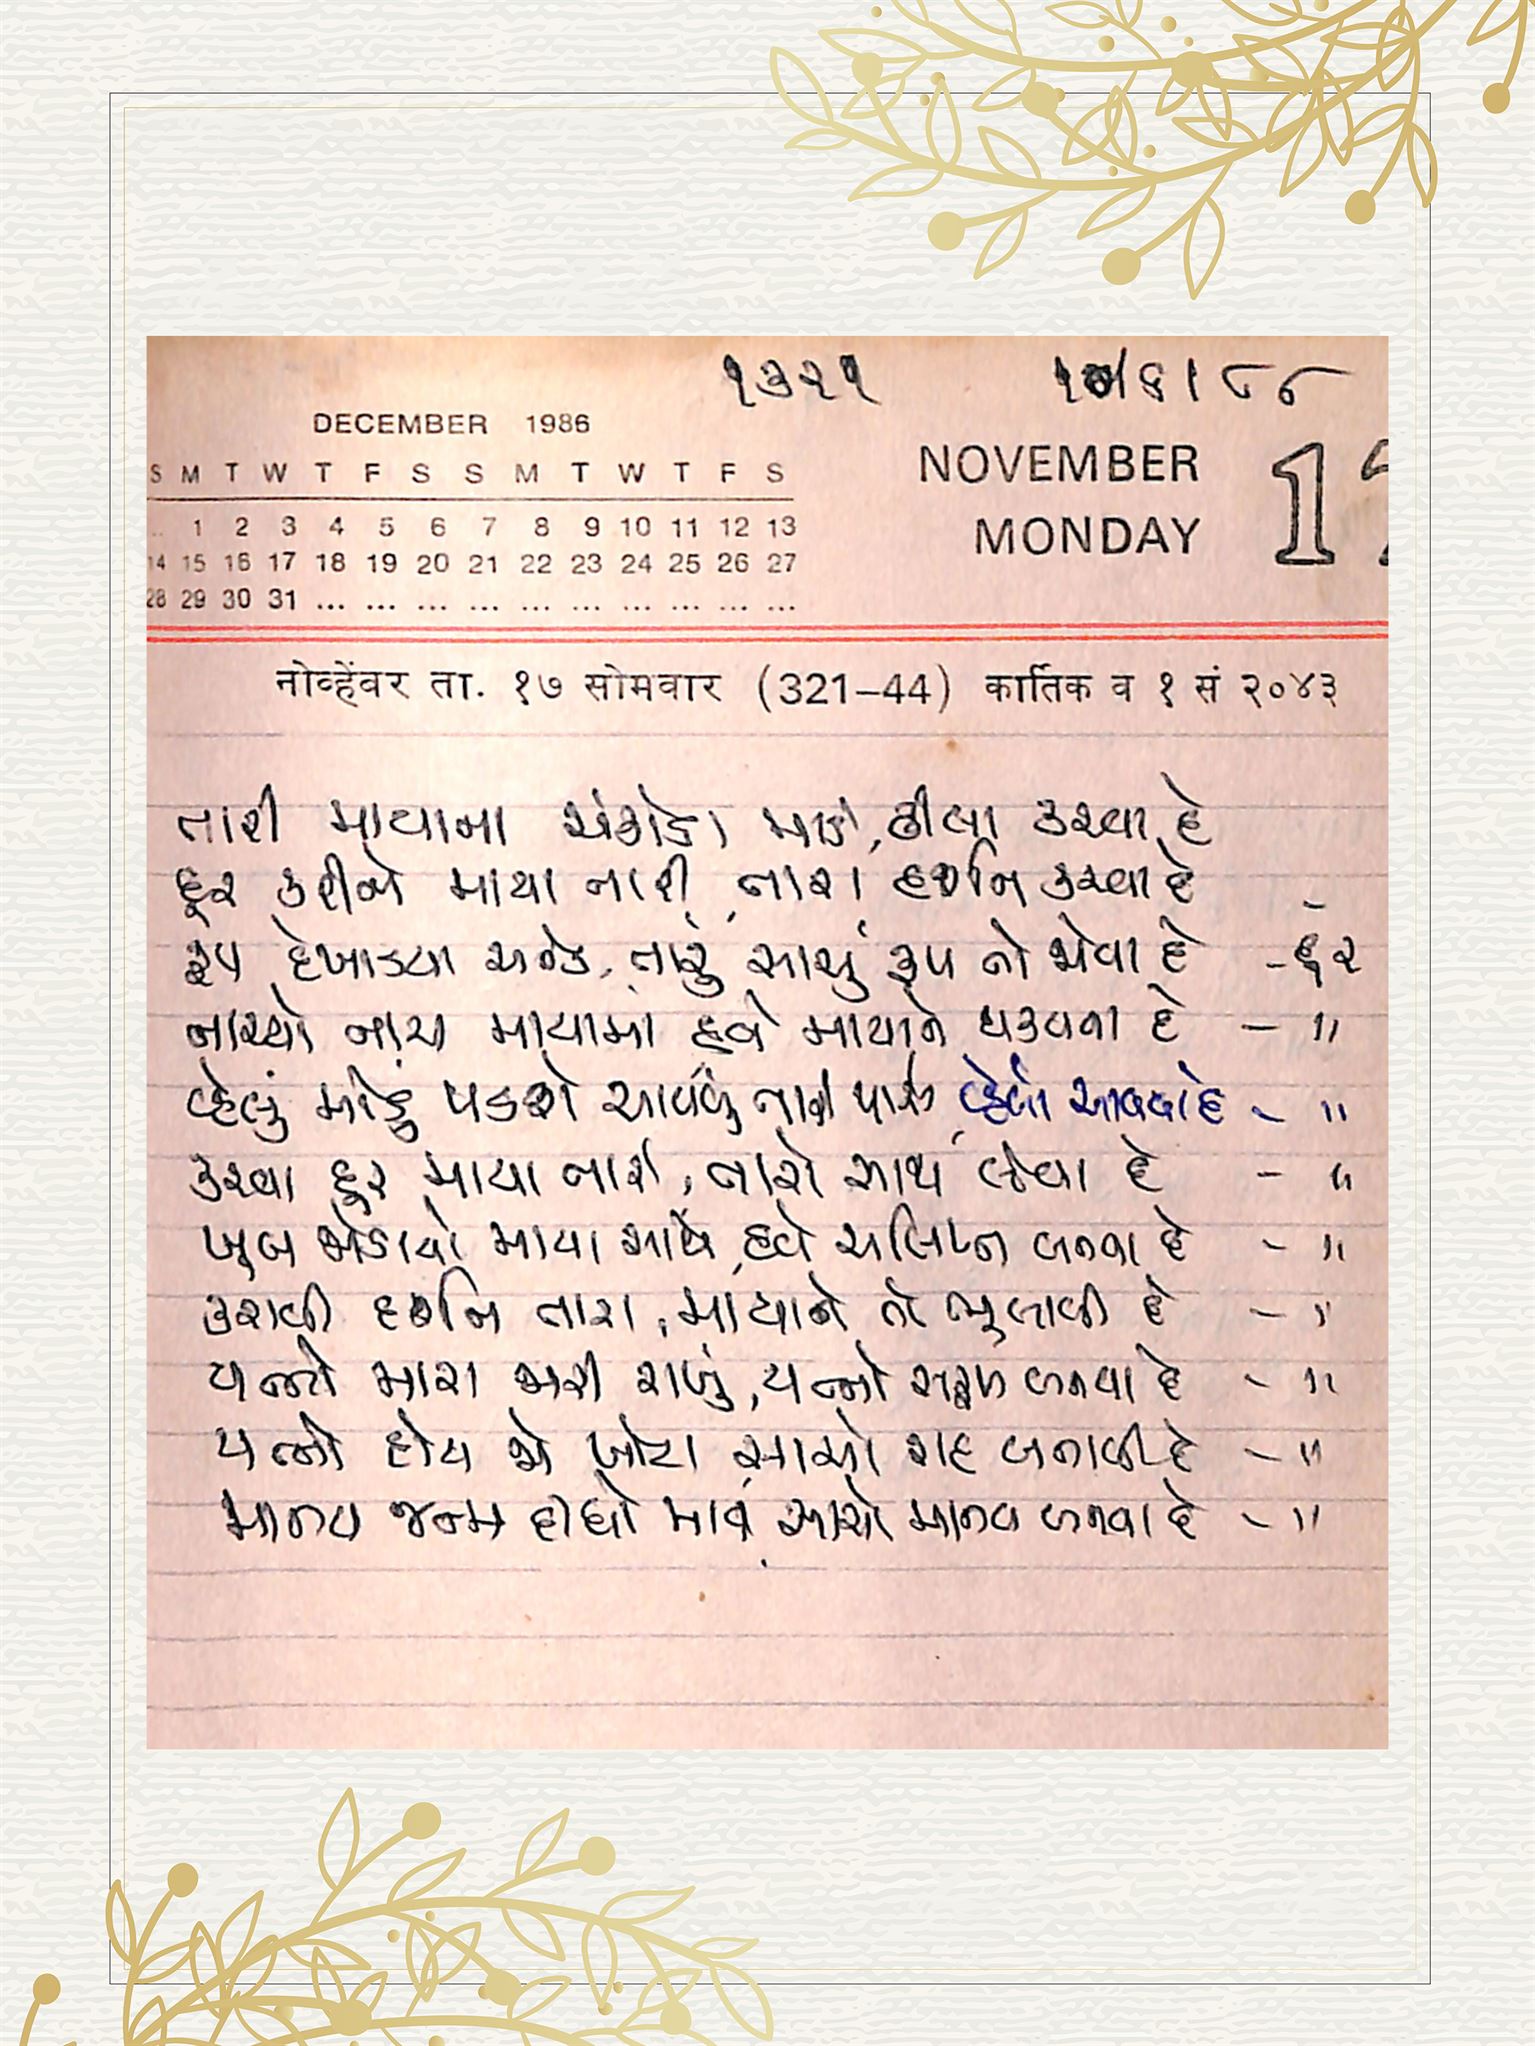 ૧૩૨૧ ૧૭/૬/૮૮
DECEMBER 1986
S M T W T F S S M T W T F S
.. 1 2 3 4 5 6 7 8 9 10 11 12 13
14 15 16 17 18 19 20 21 22 23 24 25 26 27
28 29 30 31 ... ... ... ... ... ... ... ... ... ...
NOVEMBER 17
MONDAY
नोव्हेंवर ता. १७ सोमवार (321-44) कार्तिक व १ सं २०४३
તારી માયાના અંકોડા માડી, ઢીલા કરવા દે
દૂર કરીને માયા તારી, તારા દર્શન કરવા દે -
રૂપ દેખાડયા અનેક, તારું સાચું રૂપ તો જોવા દે - દૂર
નાચ્યો નાચ માયામાં હવે માયાને થકવવા દે - "
વ્હેલું મોડું પડશે આવવું તારી પાસે, વ્હેલો આવવા દે - "
કરવા દૂર માયા તારી, તારો સાથ લેવા દે - "
ખૂબ જોડાયો માયા સાથે, હવે અલિપ્ત બનવા દે - "
કરાવી દર્શન તારા, માયાને તો ભુલાવી દે - "
યત્નો મારા જારી રાખું, યત્નો સફળ બનવા દે - "
યત્નો હોય જો ખોટા સાચો રાહ બતાવી દે - "
માનવ જન્મ દીધો માવ, સાચો માનવ બનવા દે - "